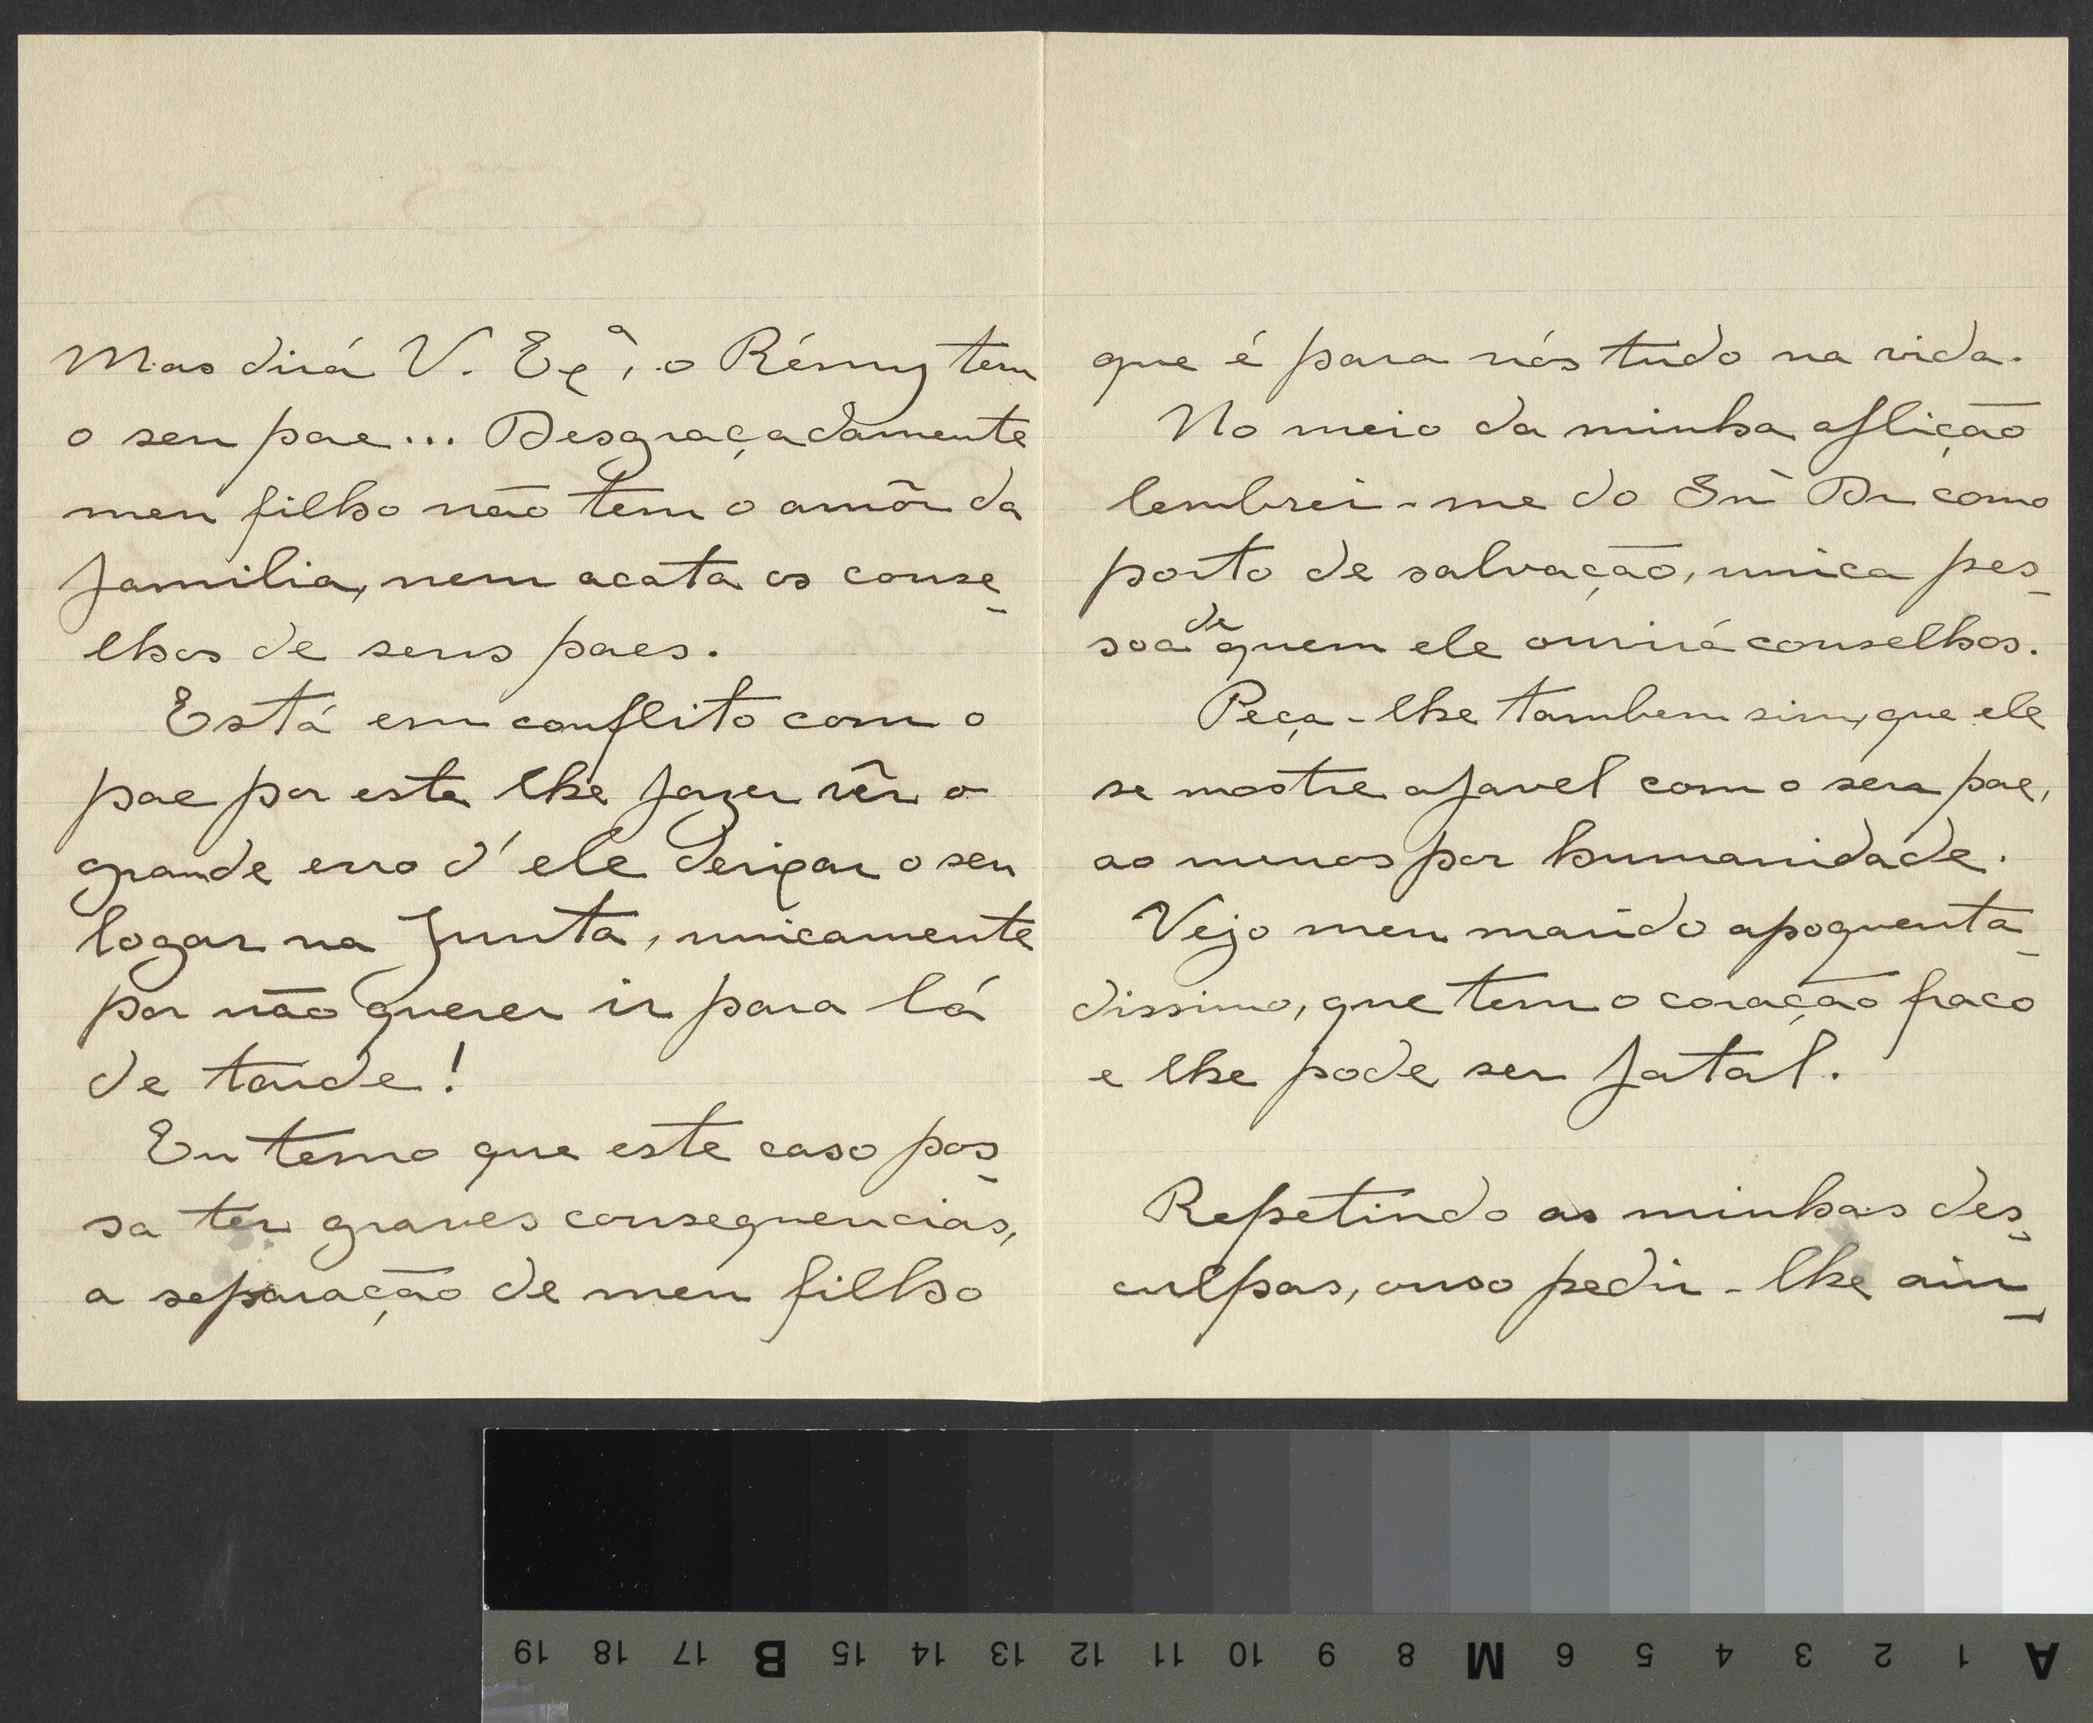 Mas dirá V. Exª, o Rémy tem
o seu pae... Desgraçadamente
meu filho não tem o amôr da
familia, nem acata os conse-
lhos de seus paes.
Está em conflito com o
pae por este lhe fazer vêr o
grande erro d'ele deixar o seu
logar na Junta, unicamente
por não querer ir para lá
de tarde!
Eu temo que este caso pos-
sa ter graves consequencias,
a separação de meu filho
que é para nós tudo na vida.
No meio da minha aflição
lembrei-me do Snr Dr como
porto de salvação, unica pes-
soa de quem ele ouvirá conselhos.
Peça-lhe tambem sim, que ele
se mostre afavel com o seu pae,
ao menos por humanidade.
Vejo meu marido apoquenta-
dissimo, que tem o coração fraco
e lhe pode ser fatal.
Repetindo as minhas des-
culpas, ouso pedir-lhe ain-
19 18 17 B 15 14 13 12 11 10 9 8 M 6 5 4 3 2 1 A